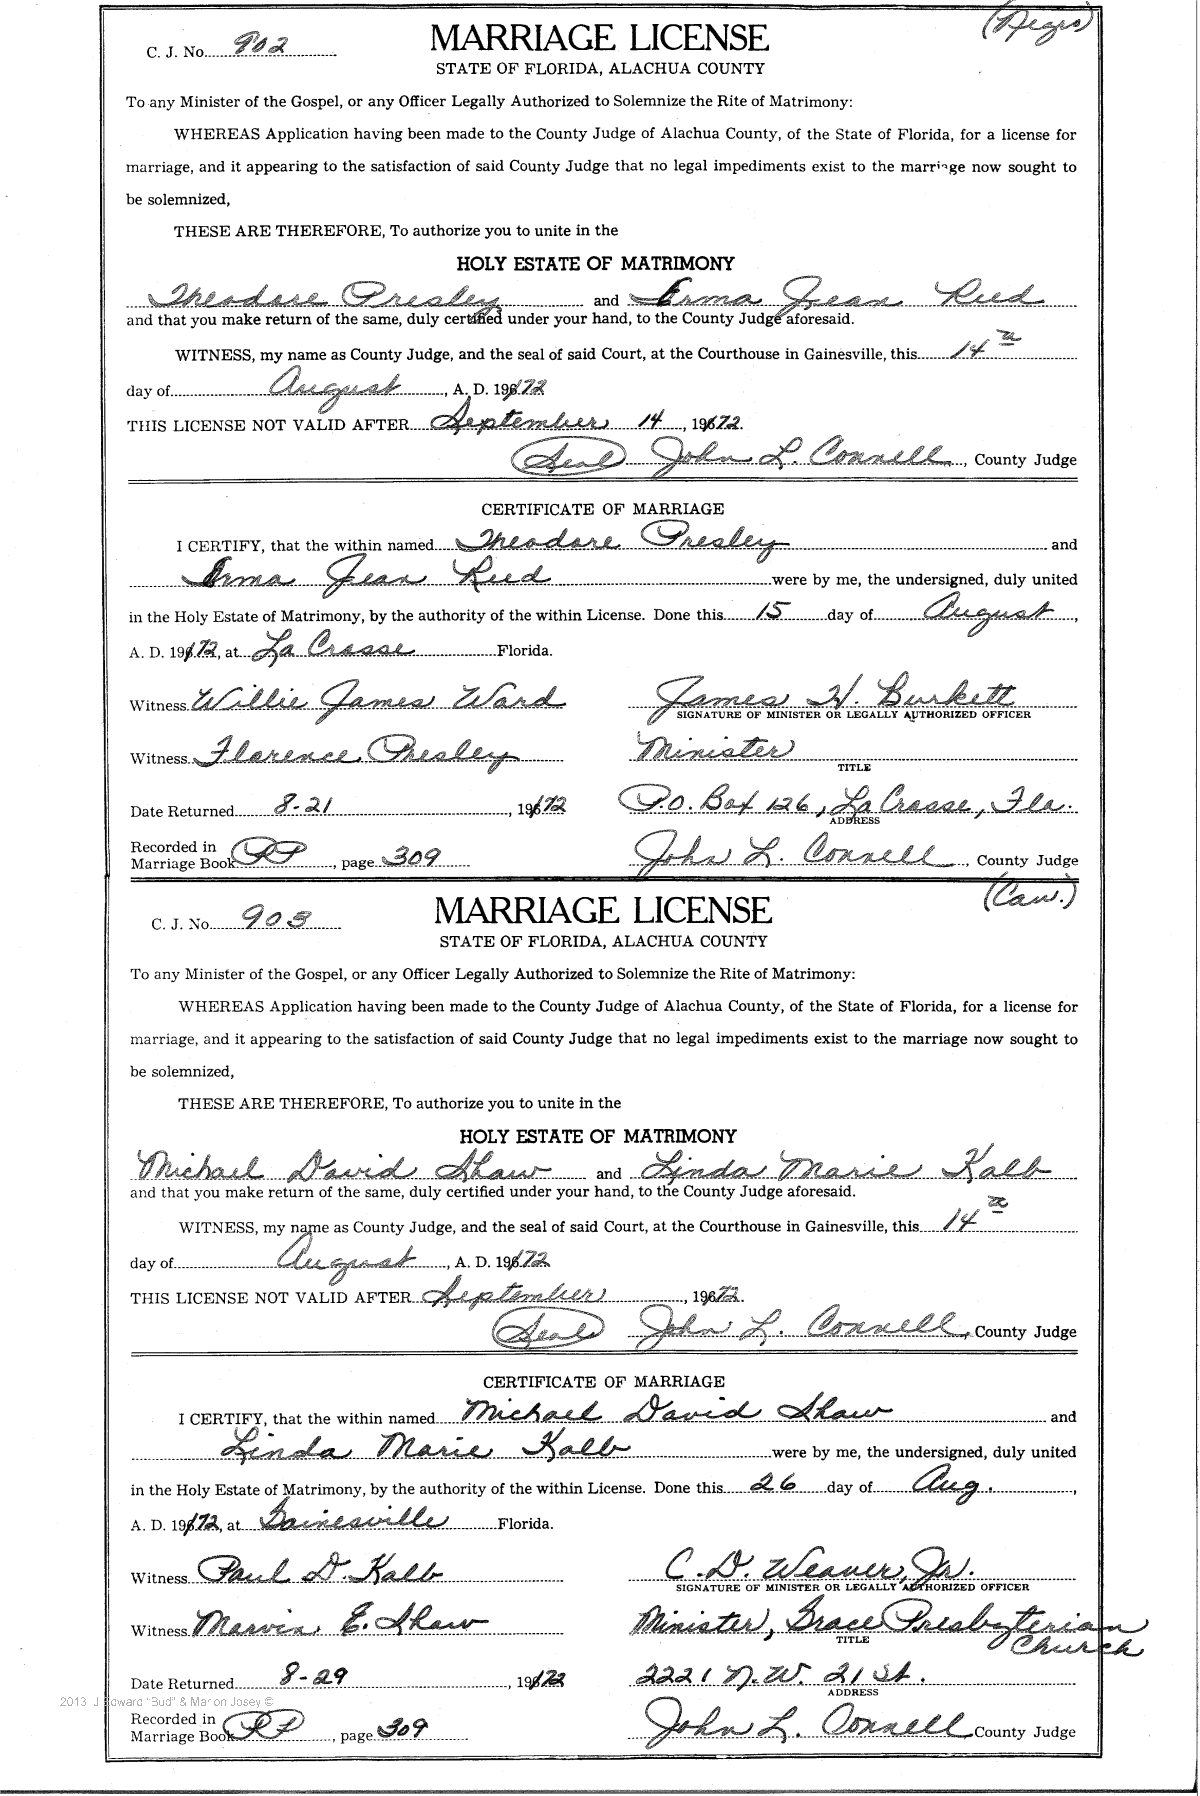 (Negro)
C. J. No. 902
MARRIAGE LICENSE
STATE OF FLORIDA, ALACHUA COUNTY
To any Minister of the Gospel, or any Officer Legally Authorized to Solemnize the Rite of Matrimony:
WHEREAS Application having been made to the County Judge of Alachua County, of the State of Florida, for a license for
marriage, and it appearing to the satisfaction of said County Judge that no legal impediments exist to the marriage now sought to
be solemnized,
THESE ARE THEREFORE, To authorize you to unite in the
HOLY ESTATE OF MATRIMONY
Theodore Presley and Erma Jean Reed
and that you make return of the same, duly certified under your hand, to the County Judge aforesaid.
WITNESS, my name as County Judge, and the seal of said Court, at the Courthouse in Gainesville, this 14th
day of August, A. D. 1972
THIS LICENSE NOT VALID AFTER September 14, 1972.
(Seal) John L. Connell, County Judge
CERTIFICATE OF MARRIAGE
I CERTIFY, that the within named Theodore Presley and
Erma Jean Reed were by me, the undersigned, duly united
in the Holy Estate of Matrimony, by the authority of the within License. Done this 15 day of August,
A. D. 1972, at La Crosse Florida.
Witness Willie James Ward James H. Burkett
SIGNATURE OF MINISTER OR LEGALLY AUTHORIZED OFFICER
Witness Florence Presley Minister
TITLE
Date Returned 8-21, 1972 P.O. Box 126, La Crosse, Fla.
ADDRESS
Recorded in
Marriage Book, page 309 John L. Connell, County Judge
(Cau.)
C. J. No. 903
MARRIAGE LICENSE
STATE OF FLORIDA, ALACHUA COUNTY
To any Minister of the Gospel, or any Officer Legally Authorized to Solemnize the Rite of Matrimony:
WHEREAS Application having been made to the County Judge of Alachua County, of the State of Florida, for a license for
marriage, and it appearing to the satisfaction of said County Judge that no legal impediments exist to the marriage now sought to
be solemnized,
THESE ARE THEREFORE, To authorize you to unite in the
HOLY ESTATE OF MATRIMONY
Michael David Shaw and Linda Marie Kalb
and that you make return of the same, duly certified under your hand, to the County Judge aforesaid.
WITNESS, my name as County Judge, and the seal of said Court, at the Courthouse in Gainesville, this 14th
day of August, A. D. 1972
THIS LICENSE NOT VALID AFTER September, 1972.
(Seal) John L. Connell, County Judge
CERTIFICATE OF MARRIAGE
I CERTIFY, that the within named Michael David Shaw and
Linda Marie Kalb were by me, the undersigned, duly united
in the Holy Estate of Matrimony, by the authority of the within License. Done this 26 day of Aug.,
A. D. 1972, at Gainesville Florida.
Witness Paul D. Kalb C. D. Weaver, Jr.
SIGNATURE OF MINISTER OR LEGALLY AUTHORIZED OFFICER
Witness Marvin E. Shaw Minister, Grace Presbyterian
Church
TITLE
Date Returned 8-29, 1972 2221 N.W. 21 St.
ADDRESS
2013 J Edward "Bud" & Marion Josey ©
Recorded in
Marriage Book, page 309 John L. Connell County Judge